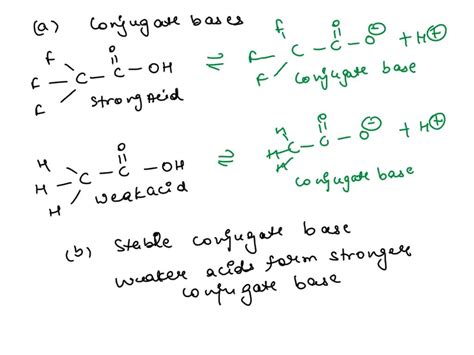 (a) Conjugate bases
F F F C – C – OH O ⇌ F F F C – C – O⊖ O + H⊕
Strong Acid
Conjugate base
H H H C – C – OH O ⇌ H H H C – C – O⊖ O + H⊕
weak acid
Conjugate base
(b) Stable conjugate base
Weaker acids form stronger
conjugate base